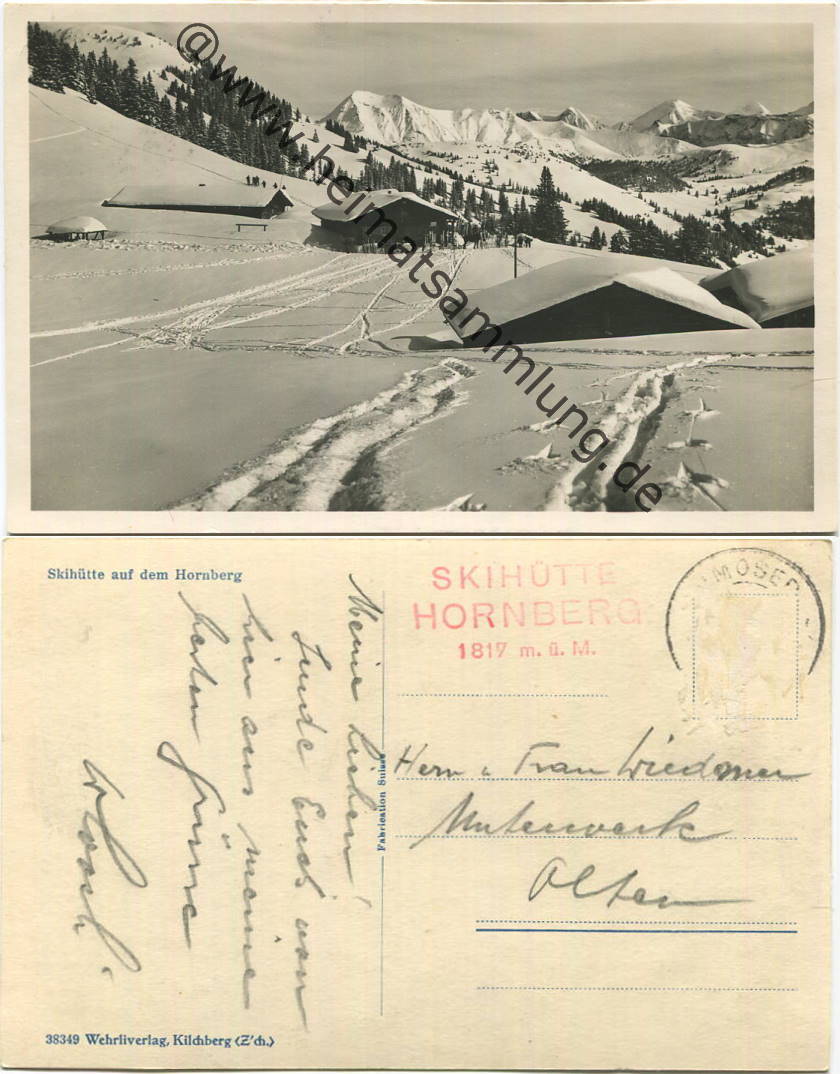 @www.heimatsammlung.de
Skihütte auf dem Hornberg
Meine Lieben!
Sende Euch von
hier aus meine
besten Grüsse
SKIHÜTTE
HORNBERG
1817 m. ü. M.
MOSER
Fabrication Suisse
Herrn u Frau Wiedmer
Olten
38349 Wehrliverlag, Kilchberg (Z'ch.)